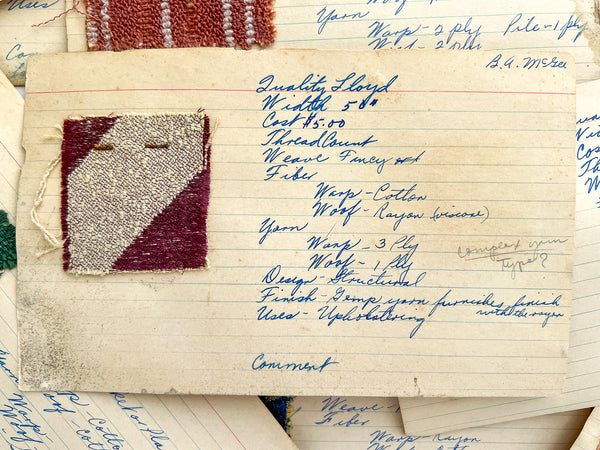 Uses
Yarn
Warp - 2 ply Pile - 1 ply
B.A. McGee
Quality Lloyd
Width 50"
Cost $5.00
Thread Count
Weave Fancy
Fiber
Warp - Cotton
Woof - Rayon (viscose)
Yarn
Warp - 3 Ply
Woof - 1 Ply
complex yarn
type?
Design - Structural
Finish - Gemp yarn furnishes finish
with the rayon
Uses - Upholstering
Comment
Cos
Th
Warp
Woof
Cotton
Weave -
Fiber
Warp - Rayon